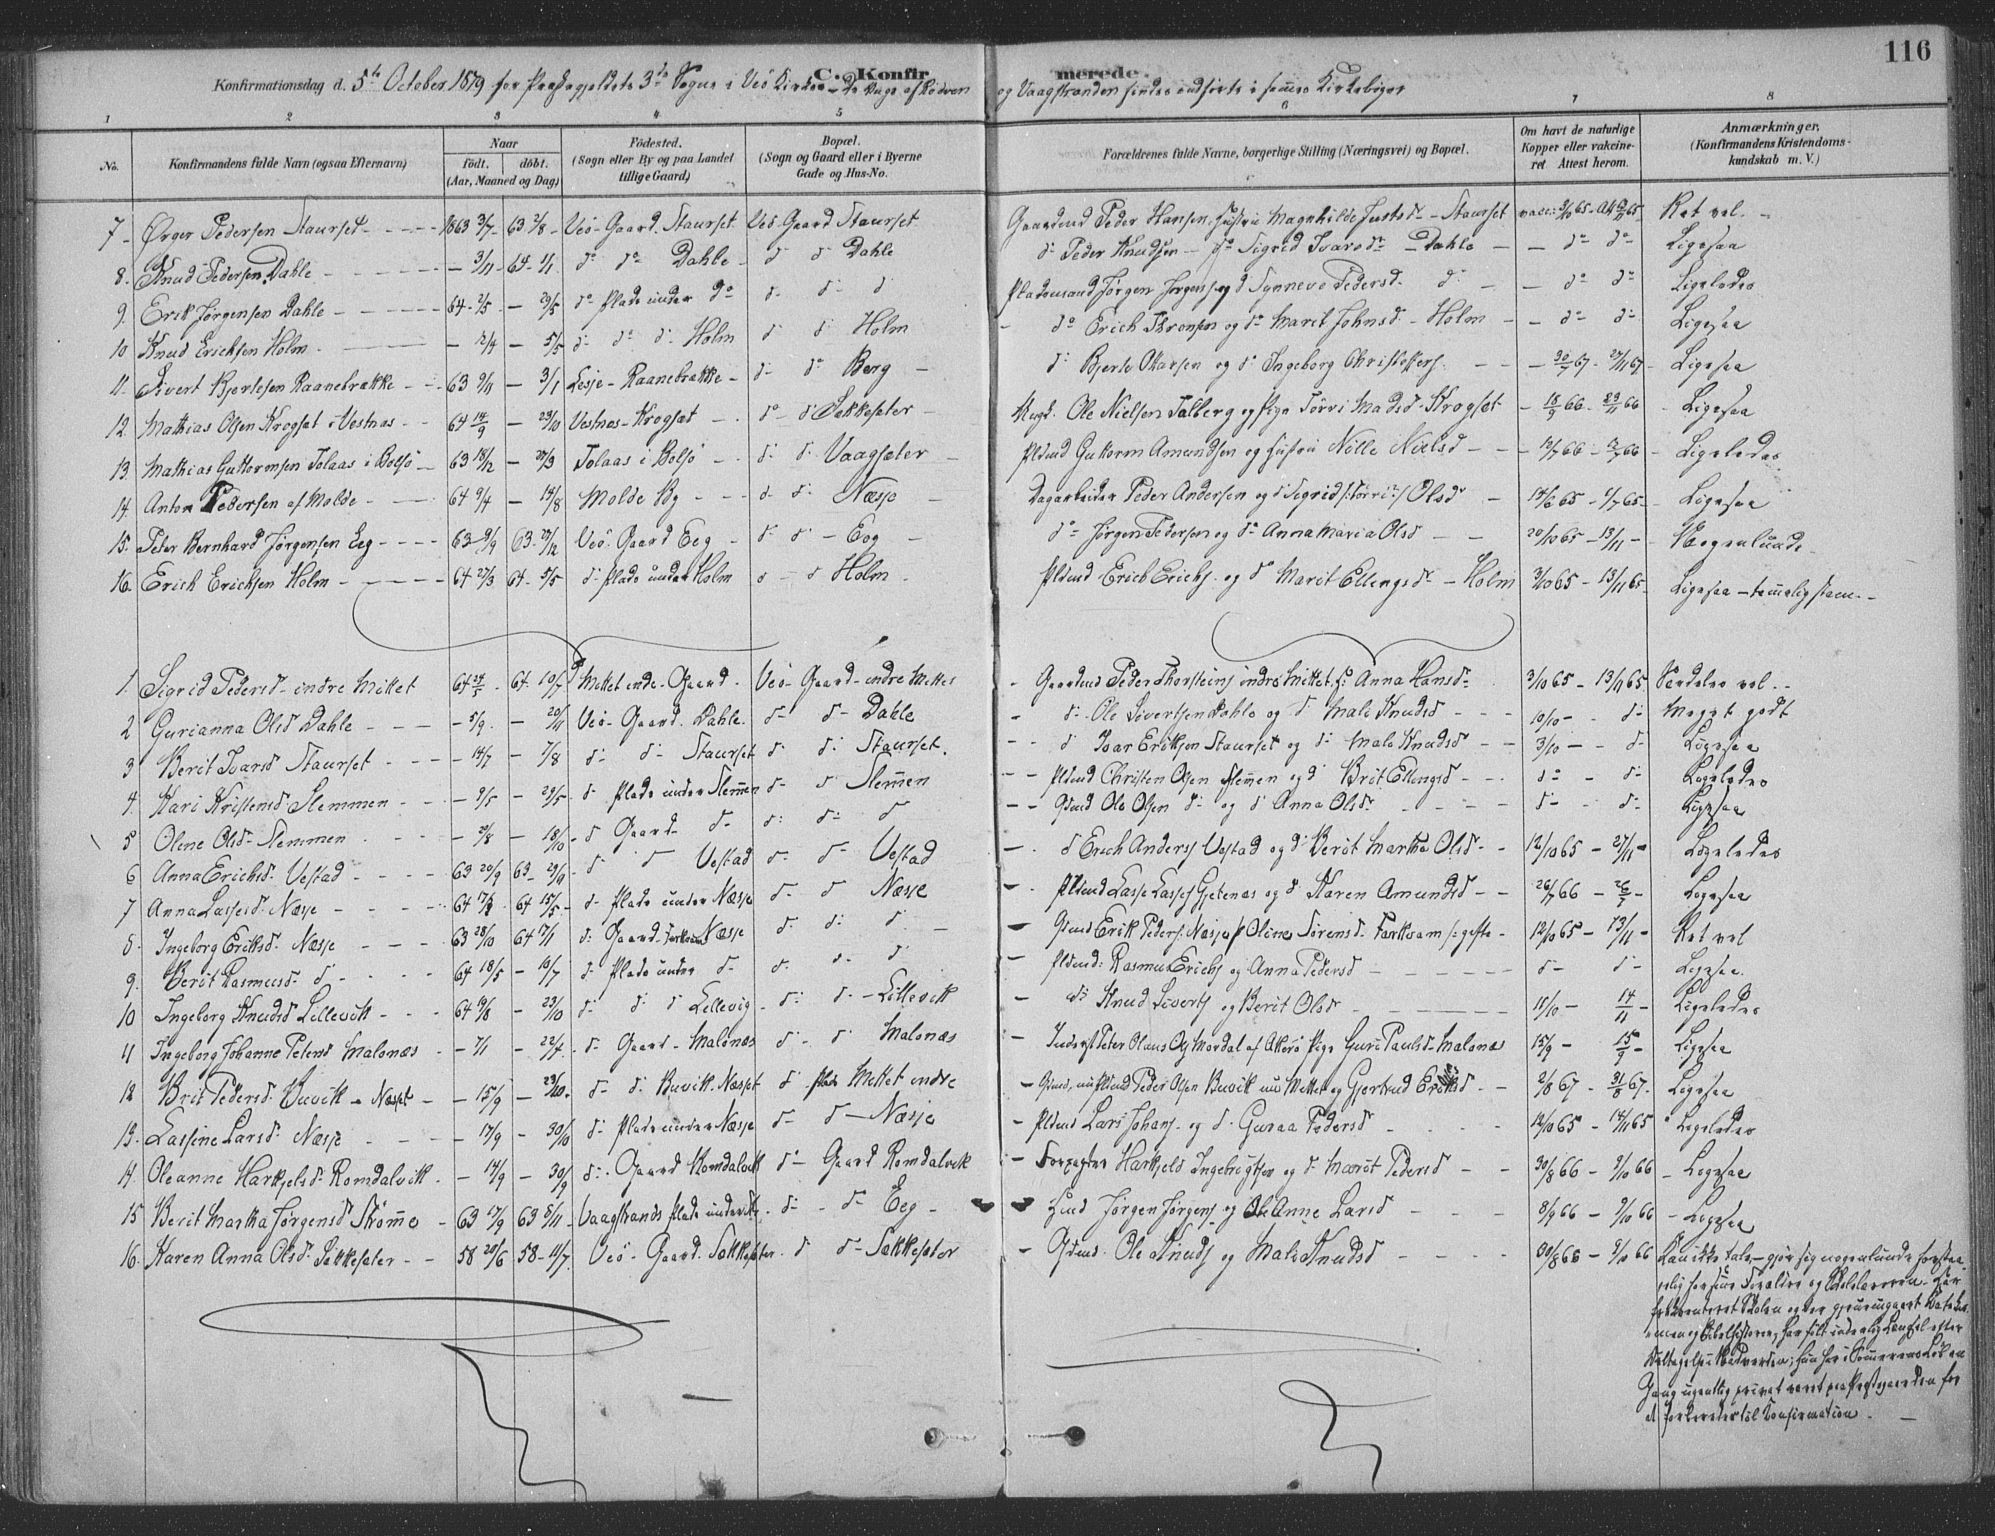 116
C. Konfir merede.
Konfirmationsdag d. 5te October 1879 for Præstegjeldets 3de Sogne i Veö Kirke - De Unge af Rödven og Vaagstranden findes indførte i samme Kirkebøger
1 2 3 4 5 6 7 8
No. Konfirmandens fulde Navn (ogsaa Efternavn) Naar födt. döbt. (Aar, Maaned og Dag) Födested. (Sogn eller By og paa Landet tillige Gaard) Bopæl. (Sogn og Gaard eller i Byerne Gade og Hus-No. Forældrenes fulde Navne, borgerlige Stilling (Næringsvei) og Bopæl. Om havt de naturlige Kopper eller vakcineret Attest herom. Anmærkninger. (Konfirmandens Kristendomskundskab m. V.)
7 - Örger Pedersen Staurset - 1863 3/7 - 63 2/8 - Veö Gaard Staurset Veö Gaard Staurset Gaardmd Peder Hansen, Hustru Magnhilde Justsd - Staurset Ret vel. -
8. Knud Pedersen Dahle - 3/11 - 64 - 1/1 do do Dahle - d d Dahle d. Peder Knudsen - do Sigrid Ivarsdr - Dahle - - do do - Ligesaa
9. Erik Jørgensen Dahle - 64 - 2/5 - 29/5 do Plads under do d. d. d Pladsmand Jørgen Jørgens og d Synneve Pedersd. d. - - do do Ligeledes
10 Knud Ericksen Holm - 12/4 - 5/5 d. do d. Holm d d. Holm do Erich Thronsen og do Marit Johnsd - Holm - - do d. Ligesaa
11. Sivert Bjertesen Raanebrække - 63 9/11 - 3/1 Lesje - Raanebrække - d. do Berg - d. Bjerte Okarsen og d. Ingeborg Christoffers. - 30/7 67 - 27/11 67 - Ligesaa
12. Mathias Olsen Krogset i Vestnæs - 64 14/9 - 23/10 Vestnæs - Krogsæt - do - d. Sekkesæter - Ungk. Ole Nielsen Talberg og Pige Törri Madsd - Krogsæt - 18/9 66 - 23/11 66 - Ligesaa
13. Mathias Guttormsen Tolaas i Bolsö - 63 18/12 - 27/3 Tolaas i Bolsö - d. d. Vaagsæter - Plsmd Guttorm Amundsen og Hustru Nille Nielsd - 12/7 66 - 66 - Ligeledes
14. Anton Pedersen af Molde - 64 9/4 - 14/8 Molde By - d - d. Næsje - Dagarbeider Peder Andersen og d Sigrid Olsdr - 14/6 65 - 1/7 65 - Ligesaa
15. Peter Bernhard Jørgensen Eeg - 63 - 9/9 63 - 27/12 Veö - Gaard Eeg - d. d. - Eeg - do Jørgen Pedersen og do Anna Maria Olsd - 20/10 65 - 13/11 - Nogenlunde.
16. Erich Ericksen Holm - 64 27/3 64 - 5/5 d. Plads under Holm d - d Holm - Plsmd Erich Erichs. og do Marit Ellingsdr - Holm 3/10 65 - 13/11 65 - Ligesaa - tammelig stam. -
1. Sigrid Pedersd - indre Mittet 64 24/5 - 64 - 10/7 Mittet indr. Gaard - Veö - Gaard - indre Mittet - Gaardmd Peder Thorsteins indre Mittet og Anna Hansd - 3/10 65 - 13/11 65 Særdeles vel. -
2 Gurianna Olsd Dahle - 5/9 - 20/11 Veö - Gaard Dahle. d. d. Dahle - d. Ole Sivertsen Dahle og d Mali Knudsd - 10/10 - d. Meget godt
3 Berit Ivarsd Staurset - 14/7 - 7/8 d. d. Staurset d. d. Staurset. - d Ivar Eriksen Staurset og d. Mali Knudsd - 3/10 - d. Ligesaa
4. Kari Kristensd Slemmen - 9/5 - 29/5 - d. Plads under Slem̄en d. d Slem̄en - Plsmd Christen Olsen Slem̄en og d Brit Ellingsd - do - d. Ligeledes
5 Oline Olsd. Slemmen - 20/8 - 18/10 - d Gaard - d. d. d. d - Gdmd Ole Olsen d. og d Anna Olsdr - d. - d. Ligesaa
6 Anna Erichsd. Vestad - 63 20/9 63 - 29/9 - d d Vestad d. d. Vestad - d Erich Anders Vestad og d. Berit Martha Olsd - 12/10 65 - 27/11 - Ligeledes
7 Anna Lassesd. Næsje - 64 64 15/5 - d. Plads under Næsje d. d Næsje - Plsmd Lasse Lasses Gjetenæs og d. Karen Amundsd - 26/7 66 - Ligesaa
8. Ingeborg Eriksd. Næsje - 63 28/10 64 17/1 d. Gaard Næsje d. d. d - - Gdmd Erik Peders. Næsje og Oline Sörensd. Farkvam - 12/10 65 - 13/11 - Ret vel
9. Berit Rasmusd. d - 64 18/5 - 10/7 d. Plads under d. d. d. d - Plsmd: Rasmus Erichs og Anna Pedersd - d. - d. Ligesaa.
10 Ingeborg Knudsd Lillevik - 64 19/8 - 23/10 d. d. d Lillevig - d. d. - Lillevik - d. Knud Siverts og Berit Olsd - 11/10 - 14/11 - Ligeledes
11 Ingeborg Johanne Petersd Malonæs - 7/1 - 22/4 - d. Gaard - Malonæs d. d. Malonæs - Inderst Peter Olaus Ols Mordal af Akerö Pige Guri Paulsd - Malonæs 15/9 - 15/9 - Ligesaa
12 Brit Pedersd. Buvik - Næsset - 15/9 - 23/10 - d. d. Buvik. Næsset d. Plads Mittet indre - Gdmd, nu Plsmd Peder Olsen Buvik nu Mittet og Gjertrud Eriksd - 2/8 67 - 31/8 67 - Ligesaa
13. Lassine Larsd. Næsje - 17/9 - 30/10 d. Plads under Næsje d. d - Næsje - Plsmd Lars Johans. og d. Guraa Pedersd - 12/10 65 - 14/11 65 Ligeledes
14. Oleanne Harkjelsd. Romdalsvik - 14/9 - 30/9 d. Gaard Romdalsvik do - Gaard Romdalsvik - Forpagter Harkjeld Ingebrigtsen og d. Marit Pedersd - 30/8 66 - 9/10 66 - Ligesaa
15 Berit Martha Jørgensd Strømme - 63 17/9 63 8/11 - Vaagstrands Plads under d. d. Eeg - Jørgen Jørgens og Oleanne Larsd - 8/9 66 - 9/10 66 - Ligesaa
16. Karen Anna Olsd. Sekkesæter - 58 20/6 58 - 11/7 Veö - Gaard - Sækkesæter. d d. Sekkesæter - Gdmd. Ole Knuds og Mali Knudsd - 30/8 66 - 9/10 66 Kan ikke tale - gjør sig nogenlunde forstaaelig for sine Forældre og Skolelæreren. Har
frekventeret Skolen og er gjennemgaaet Katekismen og Bibelhistorie, har følt inderlig Længsel efter
Deltagelse i Nadverden; hun har i Sommerens Løb en
Gang ugentlig privat været paa Præstegaarden for
at forberedes til Confirmation. -